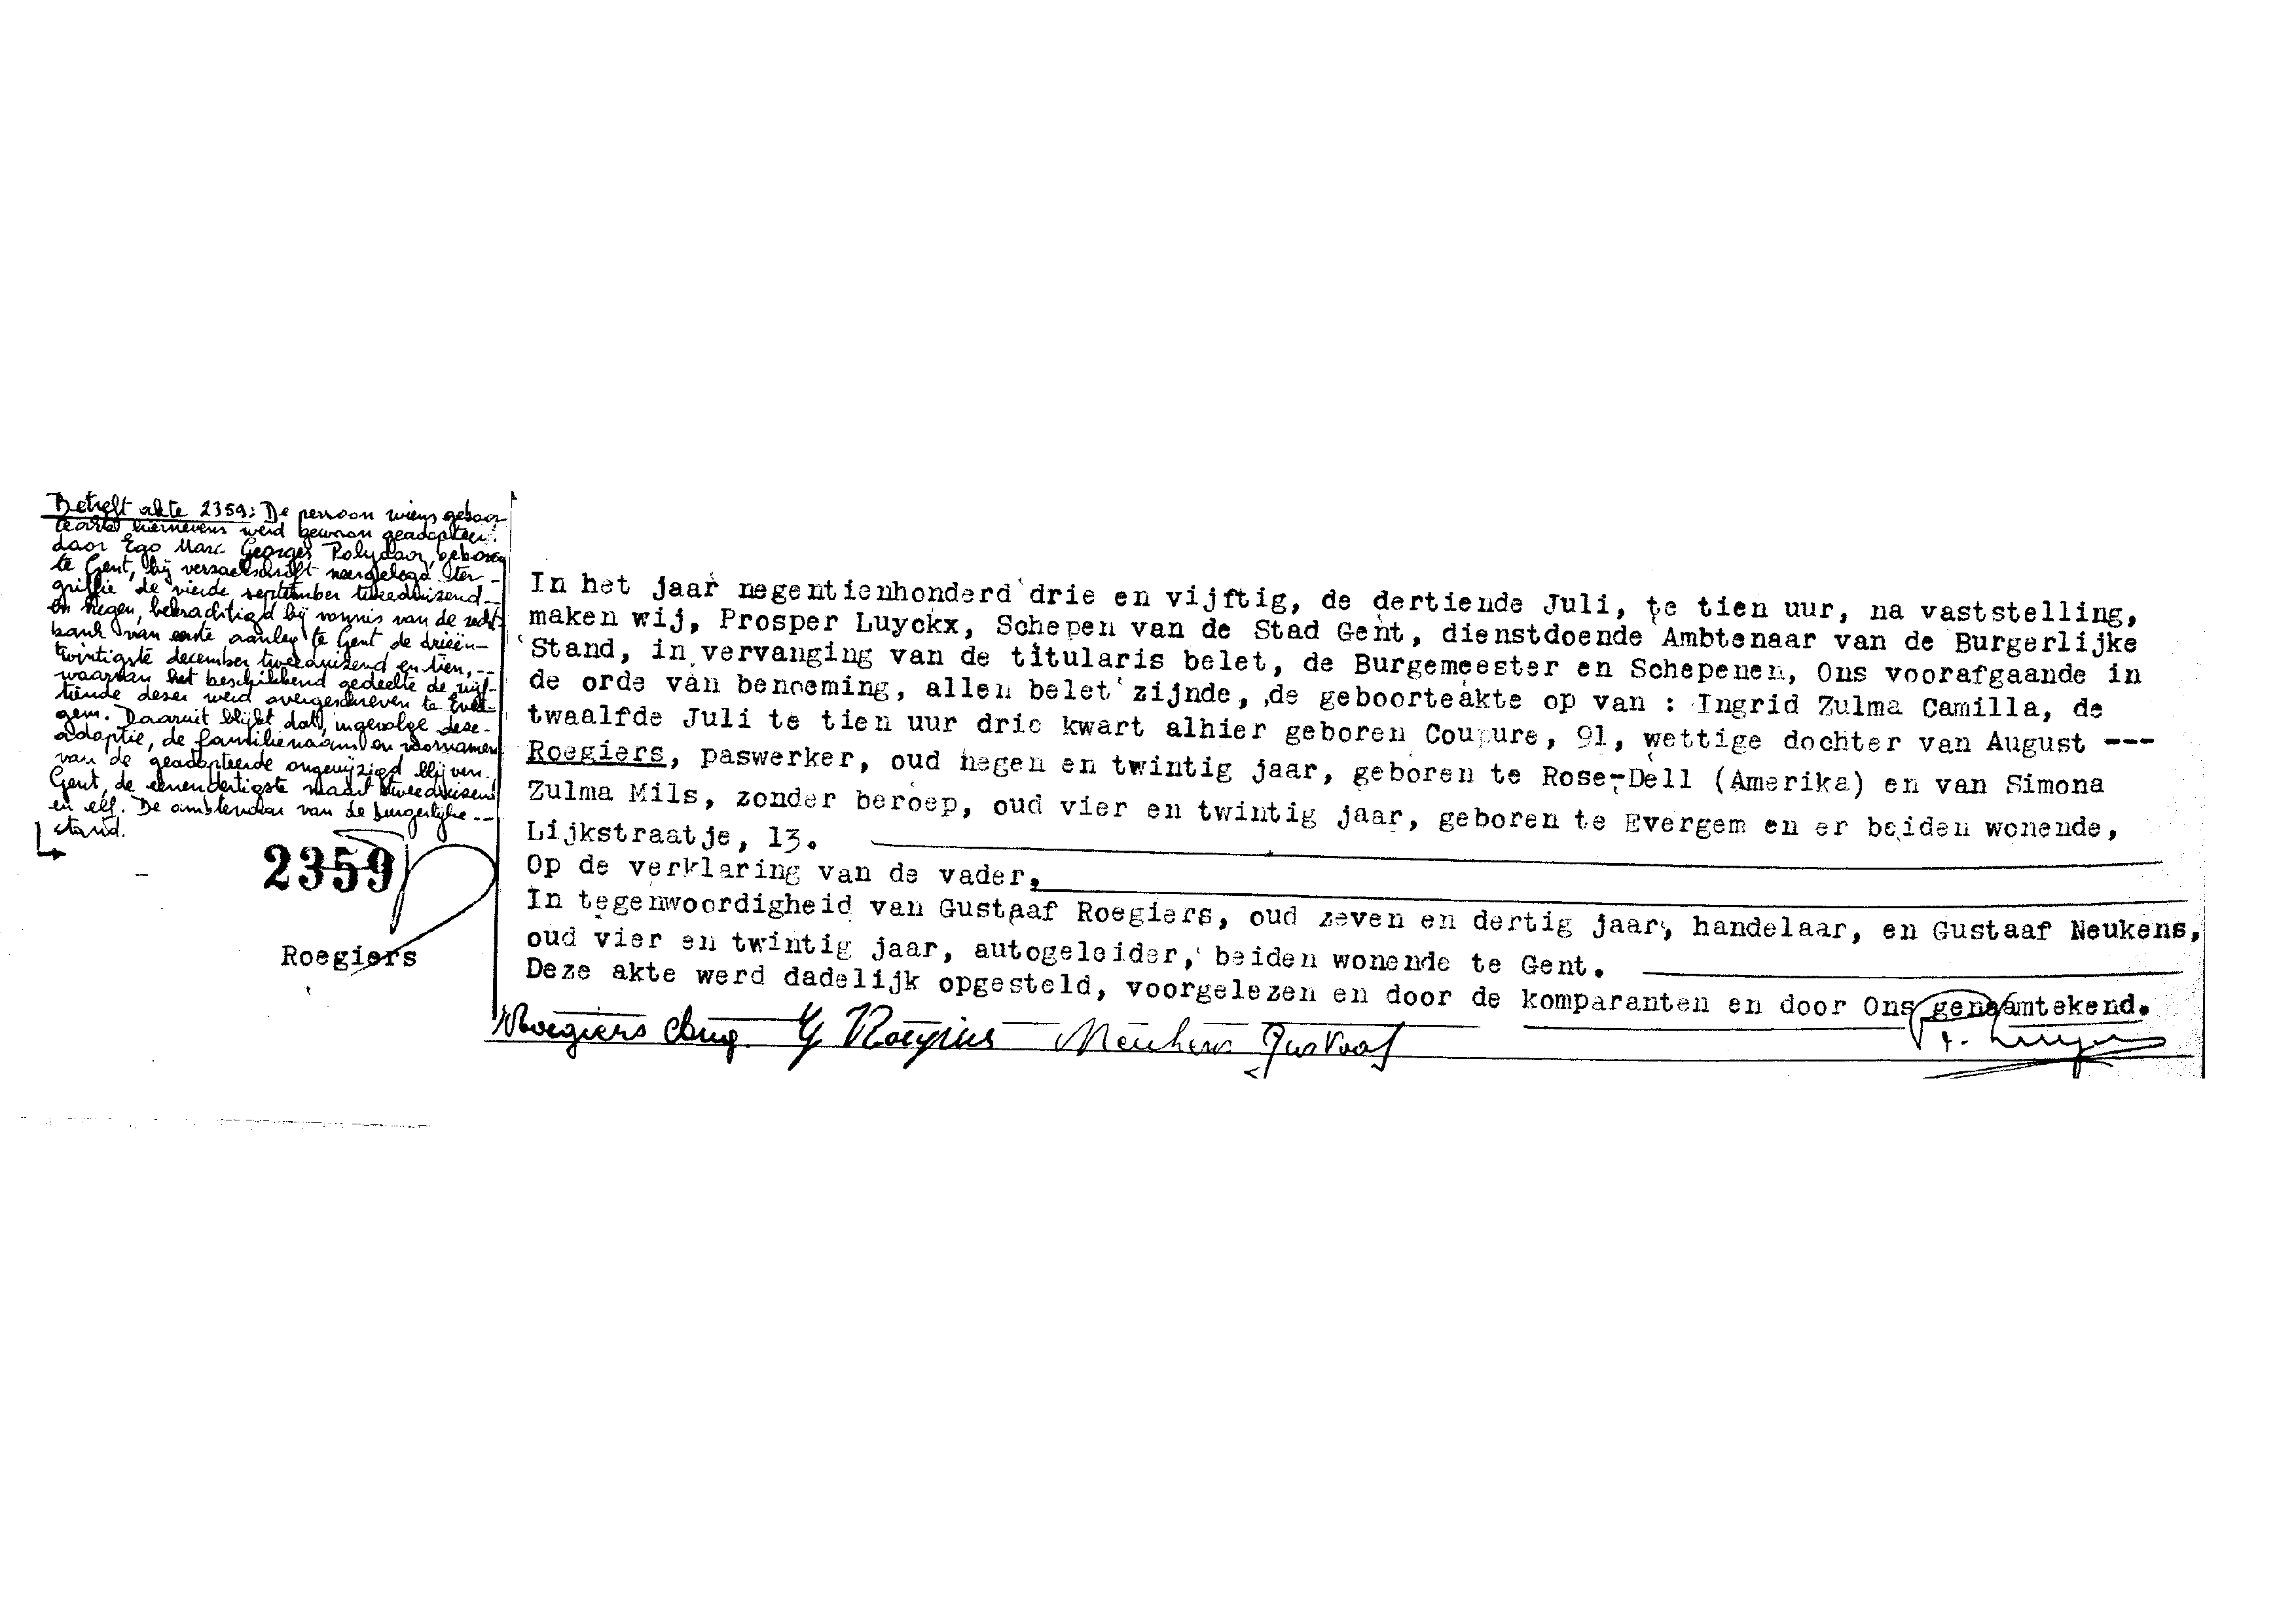 Betreft akte 2359: De persoon wiens geboor
teakte hiernevens werd gewoon geadopteerd
door Ego Marc Georges Polydoor, geboren
te Gent, bij verzoekschrift neergelegd ter -
griffie de vierde september tweeduizend --
en negen, bekrachtigd bij vonnis van de recht
bank van eerste aanleg te Gent de drieën-
twintigste december tweeduizend en tien, --
waarvan het beschikkend gedeelte de vijf-
tiende dezer werd overgeschreven te Ever-
gem. Daaruit blijkt dat, ingevolge deze -
adoptie, de familienaam en voornamen
van de geadopteerde ongewijzigd blijven.
Gent, de eenendertigste maart tweeduizend
en elf. De ambtenaar van de burgerlijke --
stand.
2359
Roegiers
In het jaar negentienhonderd drie en vijftig, de dertiende Juli, te tien uur, na vaststelling,
maken wij, Prosper Luyckx, Schepen van de Stad Gent, dienstdoende Ambtenaar van de Burgerlijke
Stand, in vervanging van de titularis belet, de Burgemeester en Schepenen, Ons voorafgaande in
de orde van benoeming, allen belet zijnde, de geboorteakte op van : Ingrid Zulma Camilla, de
twaalfde Juli te tien uur drie kwart alhier geboren Coupure, 91, wettige dochter van August ---
Roegiers, paswerker, oud negen en twintig jaar, geboren te Rose-Dell (Amerika) en van Simona
Zulma Mils, zonder beroep, oud vier en twintig jaar, geboren te Evergem en er beiden wonende,
Lijkstraatje, 13.
Op de verklaring van de vader.
In tegenwoordigheid van Gustaaf Roegiers, oud zeven en dertig jaar, handelaar, en Gustaaf Neukens,
oud vier en twintig jaar, autogeleider, beiden wonende te Gent.
Deze akte werd dadelijk opgesteld, voorgelezen en door de komparanten en door Ons genaamtekend.
Roegiers Aug. G Roegiers Neukens Gustaaf